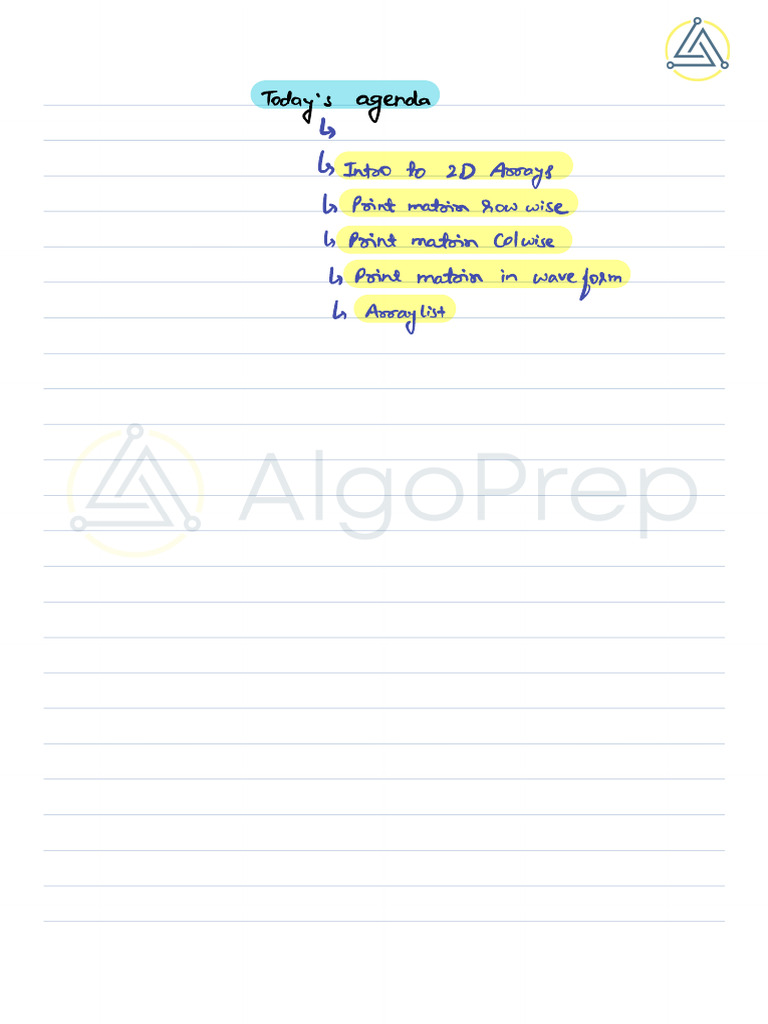 Today's agenda
↳
↳ Intro to 2D Arrays
↳ Print matrix row wise
↳ Print matrix Colwise
↳ Print matrix in wave form
↳ Arraylist
AlgoPrep